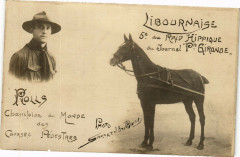 LIBOURNAISE
5e au RAID HIPPIQUE
du Journal Pte GIRONDE.
ROLLS
Champion du MONDE
des
COURSES PÉDESTRES